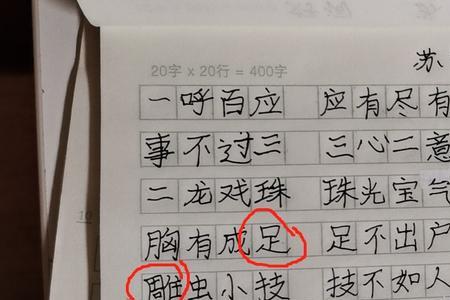 苏
20字 x 20行 = 400字
一呼百应 应有尽有
事不过三 三心二意
二龙戏珠 珠光宝气
10
胸有成足 足不出户
雕虫小技 技不如人